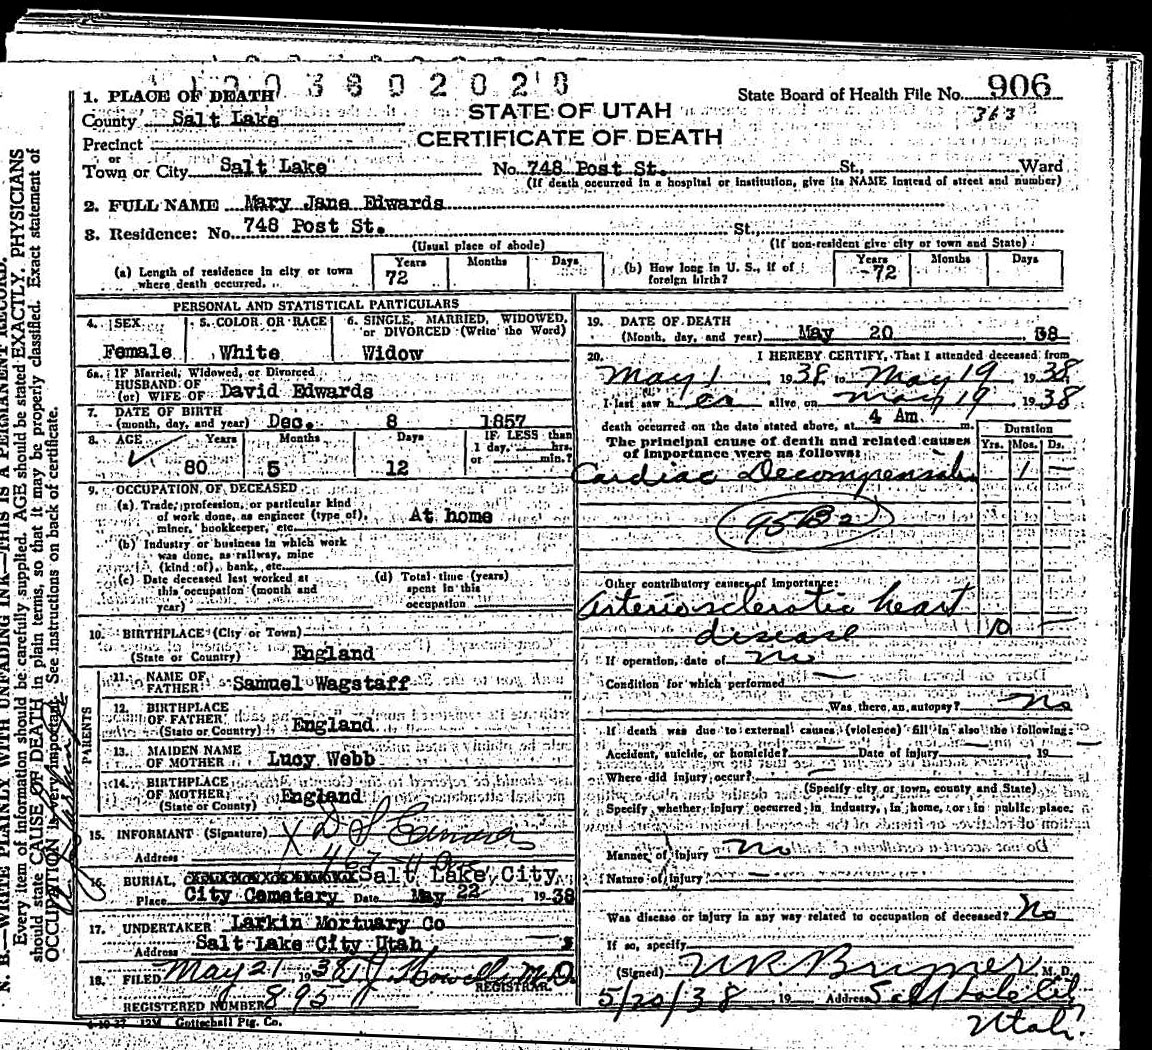 906
1. PLACE OF DEATH
State Board of Health File No.
STATE OF UTAH
363
County Salt Lake
CERTIFICATE OF DEATH
Precinct
or
Town or City Salt Lake No. 748 Post St. St., Ward
(If death occurred in a hospital or institution, give its NAME instead of street and number)
2. FULL NAME Mary Jane Edwards
3. Residence: No. 748 Post St. St.
(Usual place of abode) (If non-resident give city or town and State)
(a) Length of residence in city or town where death occurred. Years 72 Months Days
(b) How long in U. S., if of foreign birth? Years 72 Months Days
PERSONAL AND STATISTICAL PARTICULARS
4. SEX 5. COLOR OR RACE 6. SINGLE, MARRIED, WIDOWED,
or DIVORCED (Write the Word)
Female White Widow
6a. IF Married, Widowed, or Divorced
HUSBAND OF
(or) WIFE OF David Edwards
7. DATE OF BIRTH
(month, day, and year) Dec. 8 1857
8. AGE Years Months Days IF LESS than
1 day, hrs.
or min.?
80 5 12
9. OCCUPATION OF DECEASED
(a) Trade, profession, or particular kind
of work done, as engineer (type of), At home
miner, bookkeeper, etc.
(b) Industry or business in which work
was done, as railway, mine
(kind of), bank, etc.
(c) Date deceased last worked at
this occupation (month and
year)
(d) Total time (years)
spent in this
occupation
10. BIRTHPLACE (City or Town)
(State or Country) England
PARENTS
11. NAME OF
FATHER Samuel Wagstaff
12. BIRTHPLACE
OF FATHER
(State or Country) England
13. MAIDEN NAME
OF MOTHER Lucy Webb
14. BIRTHPLACE
OF MOTHER
(State or County) England
15. INFORMANT (Signature) X D S Edwards
Address 467
16. BURIAL, Salt Lake City
Place City Cemetary Date May 22 1938
17. UNDERTAKER Larkin Mortuary Co
Address Salt Lake City Utah
18. FILED May 21 1938 M.D.
REGISTRAR
REGISTERED NUMBER 895
12M Gottschall Ptg. Co.
19. DATE OF DEATH
(Month, day, and year) May 20 38
20. I HEREBY CERTIFY, That I attended deceased from
May 1 1938 to May 19 1938
I last saw h er alive on May 19 1938
death occurred on the date stated above, at 4 Am m.
The principal cause of death and related causes
of importance were as follows:
Duration
Yrs. Mos. Ds.
Cardiac Decompensation 1 —
95B2
Other contributory causes of importance:
Arteriosclerotic heart
disease 10 —
If operation, date of no
Condition for which performed —
Was there an autopsy? No
If death was due to external causes (violence) fill in also the following:
Accident, suicide, or homicide? — Date of injury 19
Where did injury occur? —
(Specify city or town, county and State)
Specify whether injury occurred in industry, in home, or in public place.
Manner of injury no
Nature of injury —
Was disease or injury in any way related to occupation of deceased? No
If so, specify
(Signed) M. D.
5/20/38 19 Address Salt Lake City
Utah.
N. B.—WRITE PLAINLY WITH UNFADING INK—THIS IS A PERMANENT RECORD.
Every item of information should be carefully supplied. AGE should be stated EXACTLY. PHYSICIANS
should state CAUSE OF DEATH in plain terms, so that it may be properly classified. Exact statement of
OCCUPATION is very important. See instructions on back of certificate.